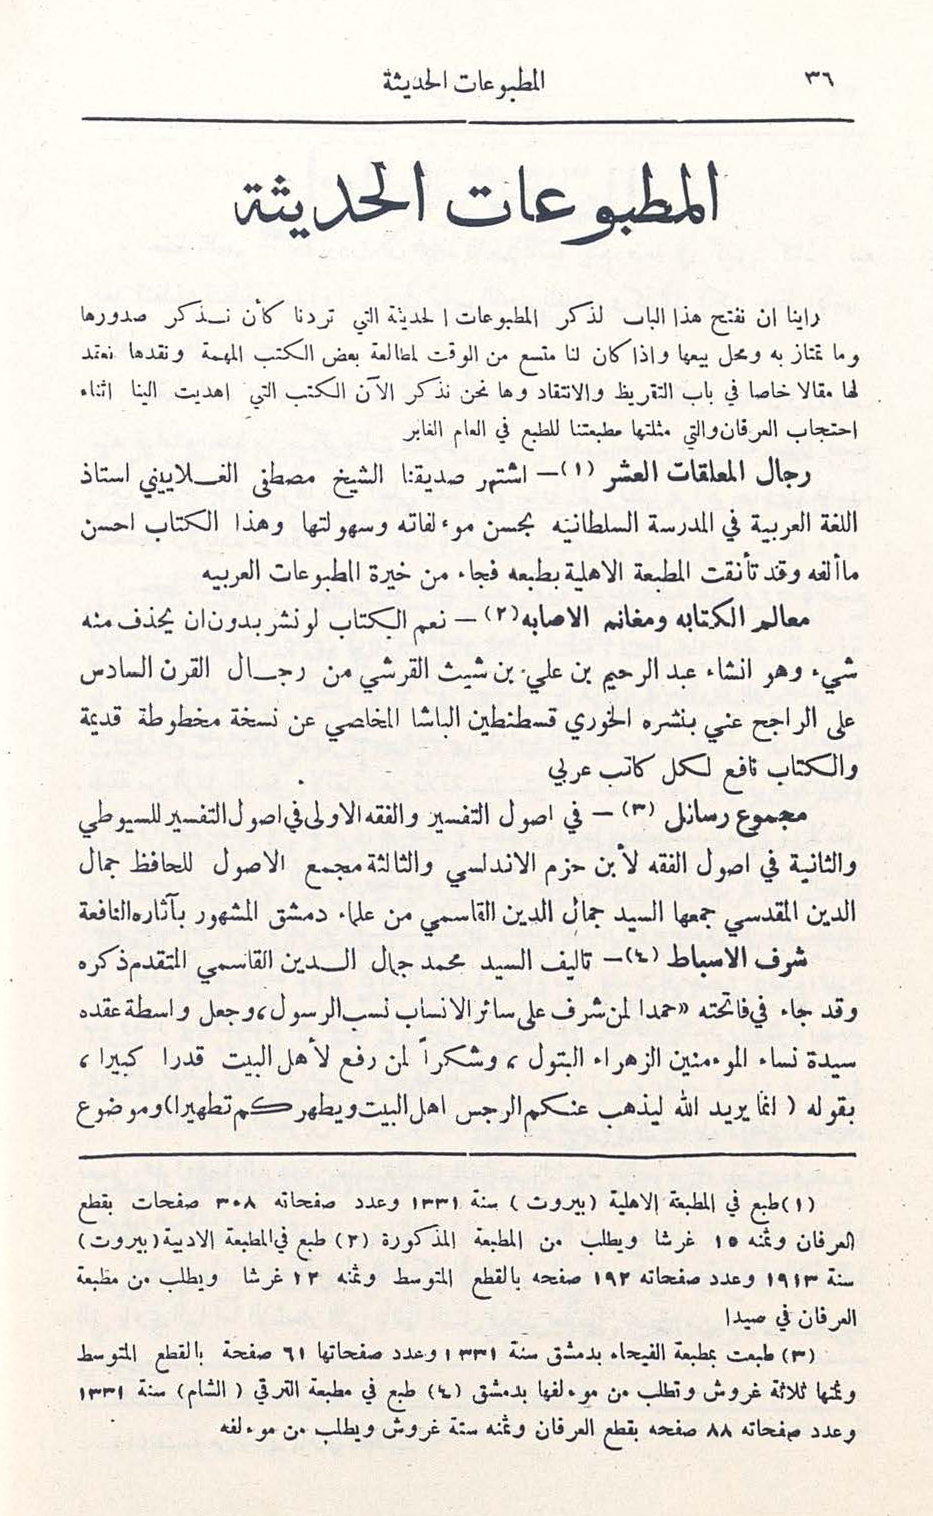 ٣٦
المطبوعات الحديثة
المطبوعات الحديثة
راينا ان نفتح هذا الباب لذكر المطبوعات الحديثة التي تردنا كأن نـذكر صدورها
وما تمتاز به ومحل بيعها واذا كان لنا متسع من الوقت لمطالعة بعض الكتب المهمة ونقدها نعقد
لها مقالا خاصا في باب التقريظ والانتقاد وها نحن نذكر الآن الكتب التي اهديت الينا اثناء
احتجاب العرفان والتي مثلتها مطبعتنا للطبع في العام الغابر
رجال المعلقات العشر (١) — اشتهر صديقنا الشيخ مصطفى الغـلاييني استاذ
اللغة العربية في المدرسة السلطانيه بحسن موءلفاته وسهولتها وهذا الكتاب احسن
ماألفه وقد تأنقت المطبعة الاهلية بطبعه فجاء من خيرة المطبوعات العربيه
معالم الكتابه ومغانم الاصابه (٢) — نعم الكتاب لو نشر بدون ان يحذف منه
شيء وهو انشاء عبد الرحيم بن علي بن شيث القرشي من رجـال القرن السادس
على الراجح عني بنشره الخوري قسطنطين الباشا المخلصي عن نسخة مخطوطة قديمة
والكتاب نافع لكل كاتب عربي
مجموع رسائل (٣) — في اصول التفسير والفقه الاولى في اصول التفسير للسيوطي
والثانية في اصول الفقه لأبن حزم الاندلسي والثالثة مجمع الاصول للحافظ جمال
الدين المقدسي جمعها السيد جمال الدين القاسمي من علماء دمشق المشهور بآثاره النافعة
شرف الاسباط (٤) — تاليف السيد محمد جمال الـدين القاسمي المتقدم ذكره
وقد جاء في فاتحته «حمدا لمن شرف على سائر الانساب نسب الرسول، وجعل واسطة عقده
سيدة نساء الموءمنين الزهراء البتول ، وشكراً لمن رفع لأهل البيت قدرا كبيرا ،
بقوله ( انما يريد الله ليذهب عنكم الرجس اهل البيت ويطهركم تطهيرا) وموضوع
(١) طبع في المطبعة الاهلية (بيروت) سنة ١٣٣١ وعدد صفحاته ٣٠٨ صفحات بقطع
العرفان وثمنه ١٥ غرشا ويطلب من المطبعة المذكورة (٢) طبع في المطبعة الادبية (بيروت)
سنة ١٩١٣ وعدد صفحاته ١٩٢ صفحه بالقطع المتوسط وثمنه ١٢ غرشا ويطلب من مطبعة
العرفان في صيدا
(٣) طبعت بمطبعة الفيحاء بدمشق سنة ١٣٣١ وعدد صفحاتها ٦١ صفحة بالقطع المتوسط
وثمنها ثلاثة غروش وتطلب من موءلفها بدمشق (٤) طبع في مطبعة الترقي ( الشام) سنة ١٣٣١
وعدد صفحاته ٨٨ صفحه بقطع العرفان وثمنه ستة غروش ويطلب من موءلفه